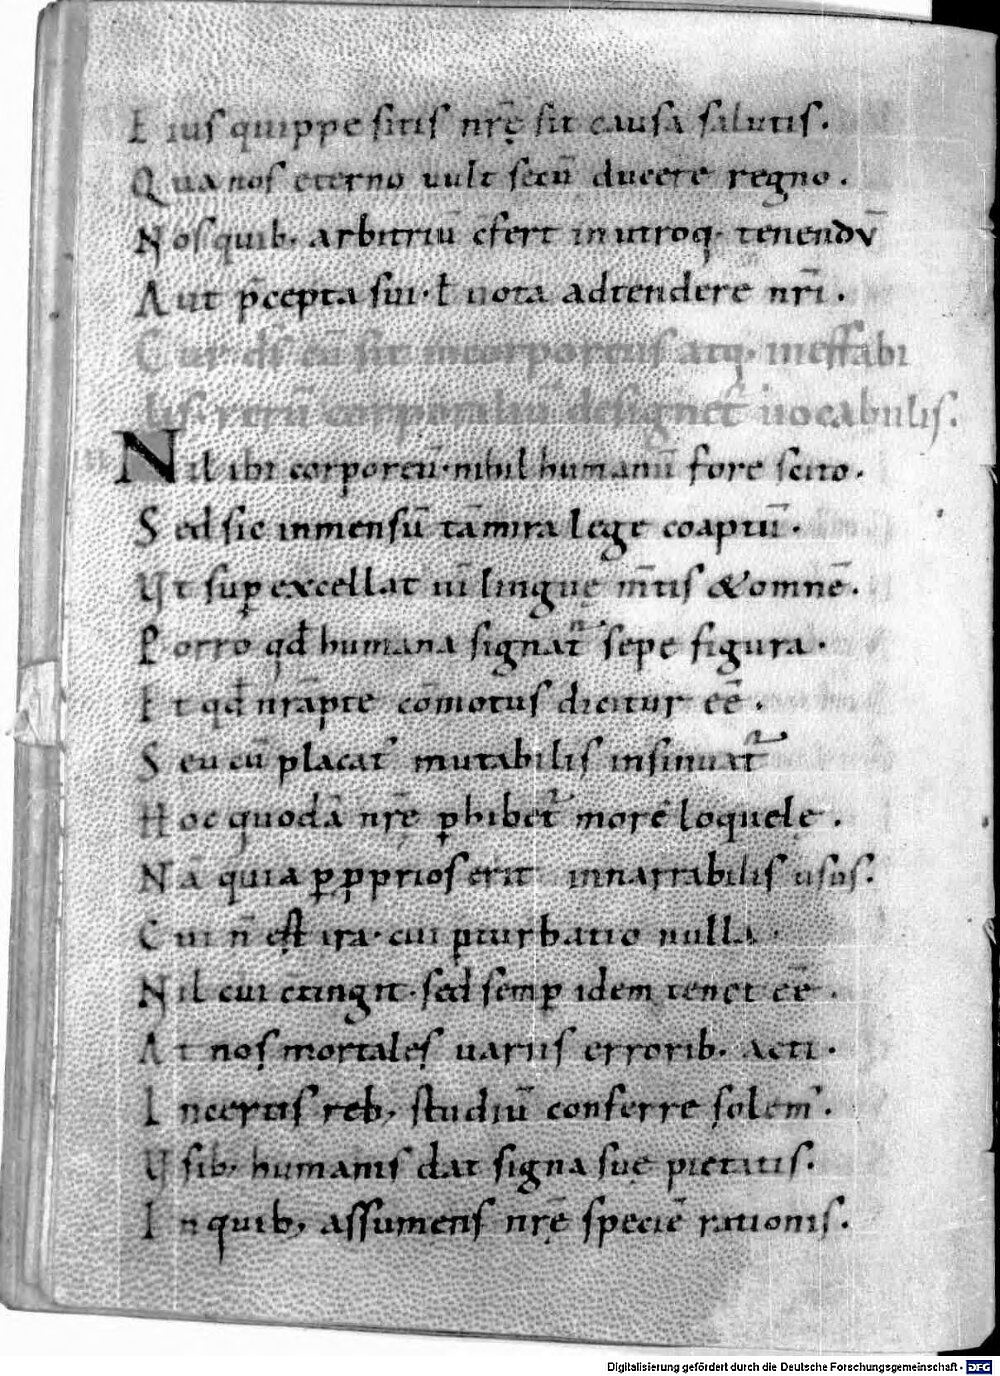 Eius quippe sitis nr̄ę sit causa salutis.
Qua nos eterno uult secū ducere regno.
Nos quib; arbitriū c̄fert in utroq; tenendv̄
Aut p̄cepta sui. ł uota adtendere nr̄i.
Cur ds̄ cū sit incorporeus atq; ineffabi
lis. rerū corporaliū designet᷑ uocabulis.
Nil ibi corporeū. nihil humanū fore scito.
Sed sic inmensū tā mira lege coaptū.
Vt suꝑexcellat uī linguę m̄tis & omnē.
Porro qd̄ humana signat᷑ sepe figura.
Et qd̄ nr̄a ꝑte cōmotus dicitur eē.
Seu cū placat᷑ mutabilis insinuat᷑
Hoc quodā nr̄ę ꝑhibet᷑ more loquelę.
Nā quia ꝑ ꝓprios erit innarrabilis usus.
Cui n̄ est ira. cui ꝑturbatio nulla.
Nil cui c̄tingit. sed semꝑ idem tenet eē.
At nos mortales uariis errorib; acti.
Incertis reb; studiū conferre solem᷒.
Vsib; humanis dat signa suę pietatis.
In quib; assumens nr̄ę speciē rationis.
Digitalisierung gefördert durch die Deutsche Forschungsgemeinschaft - DFG